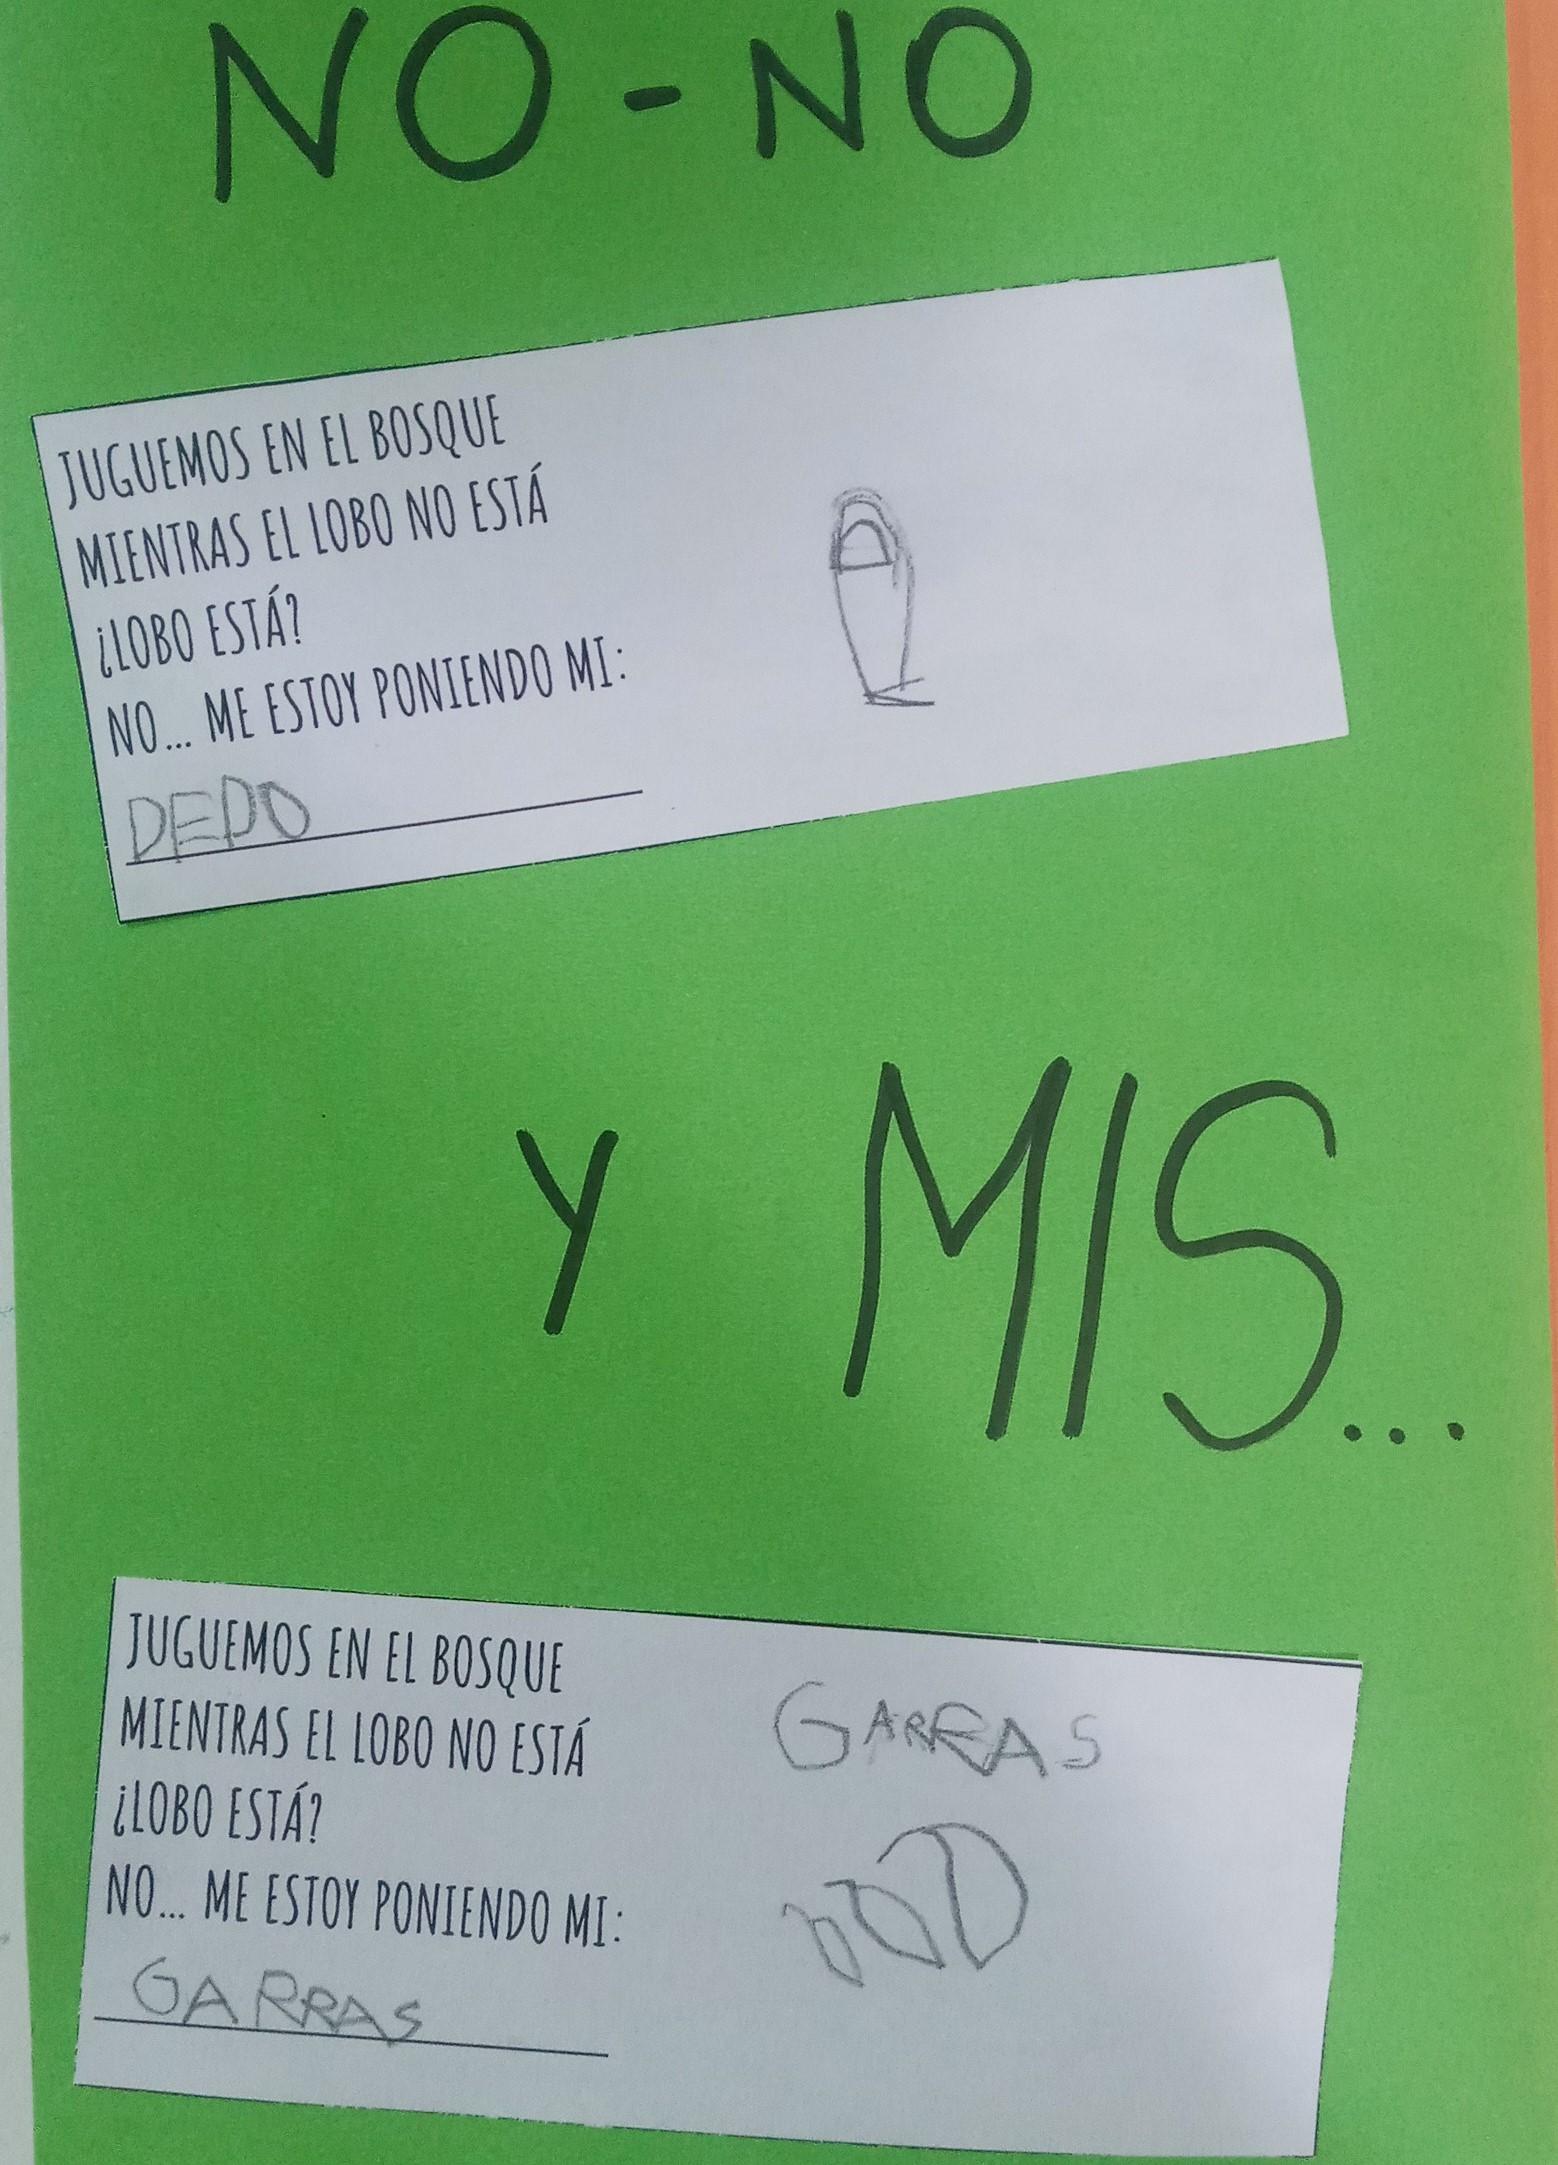 NO-NO
JUGUEMOS EN EL BOSQUE
MIENTRAS EL LOBO NO ESTÁ
¿LOBO ESTÁ?
NO... ME ESTOY PONIENDO MI:
DEDO
Y MIS...
JUGUEMOS EN EL BOSQUE
MIENTRAS EL LOBO NO ESTÁ
¿LOBO ESTÁ?
NO... ME ESTOY PONIENDO MI:
GARRAS
GARRAS